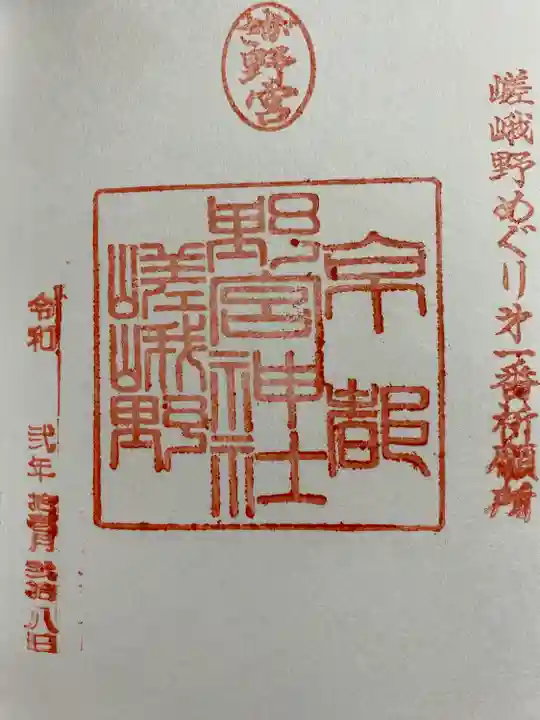 嵯峨野めぐり第一番祈願所
野宮
京都
野宮神社
嵯峨野
令和 弐年 月弐拾八日